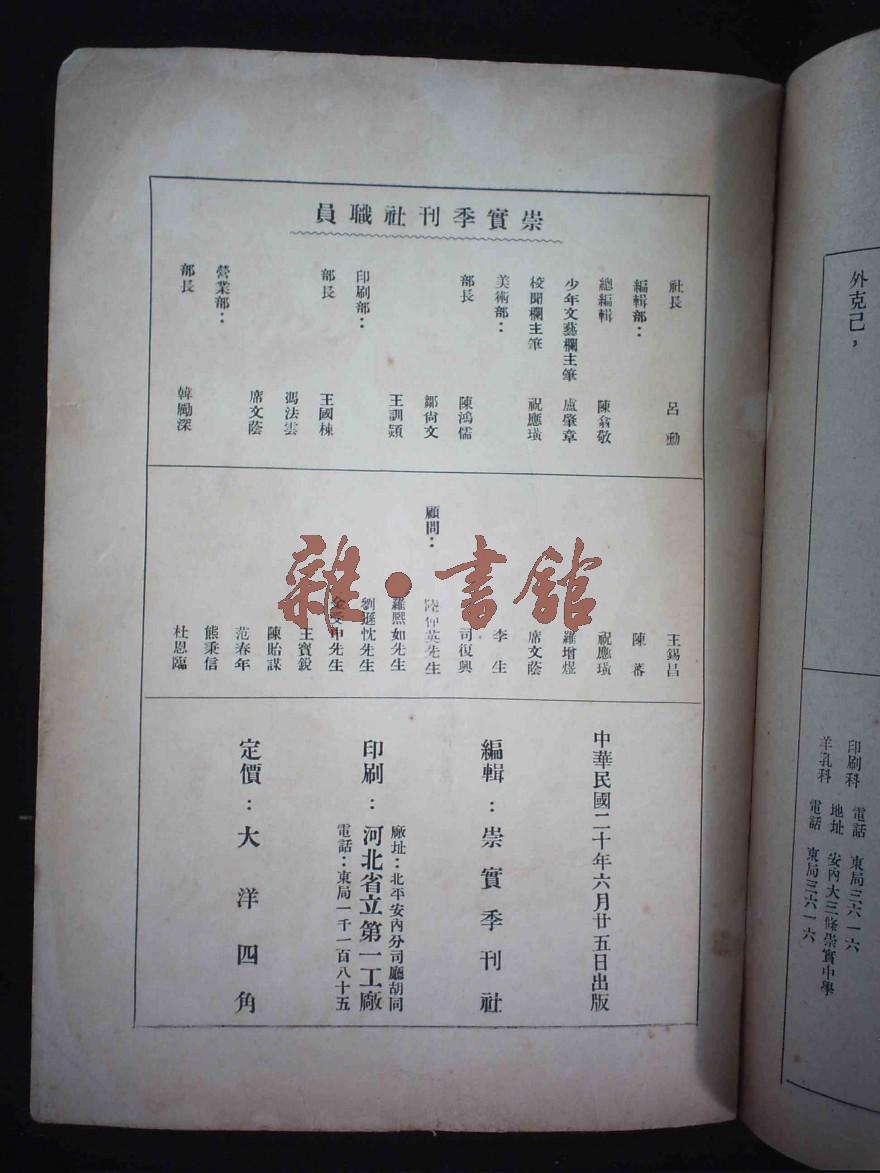 崇實季刊社職員
社長 呂動
編輯部：
總編輯 陳翕敬
少年文藝欄主筆 盧肇章
校聞欄主筆 祝應璜
美術部：
部長 陳鴻儒
鄒尙文
印刷部： 王訓頴
部長 王國棟
馮法雲
席文蔭
營業部：
部長 韓勵深
王錫昌
陳蕃
祝應璜
羅增煜
席文蔭
李生
司復興
顧問： 陸仲英先生
羅熙如先生
劉遯忱先生
金受申先生
王寶銳
陳貽謀
范春年
熊秉信
杜恩臨
雜·書館
中華民國二十年六月廿五日出版
編輯：崇實季刊社
廠址：北平安內分司廳胡同
印刷：河北省立第一工廠
電話：東局一千一百八十五
定價：大洋四角
外克己，
印刷科 電話 東局三六一六
地址 安內大三條崇實中學
羊乳科 電話 東局三六一六